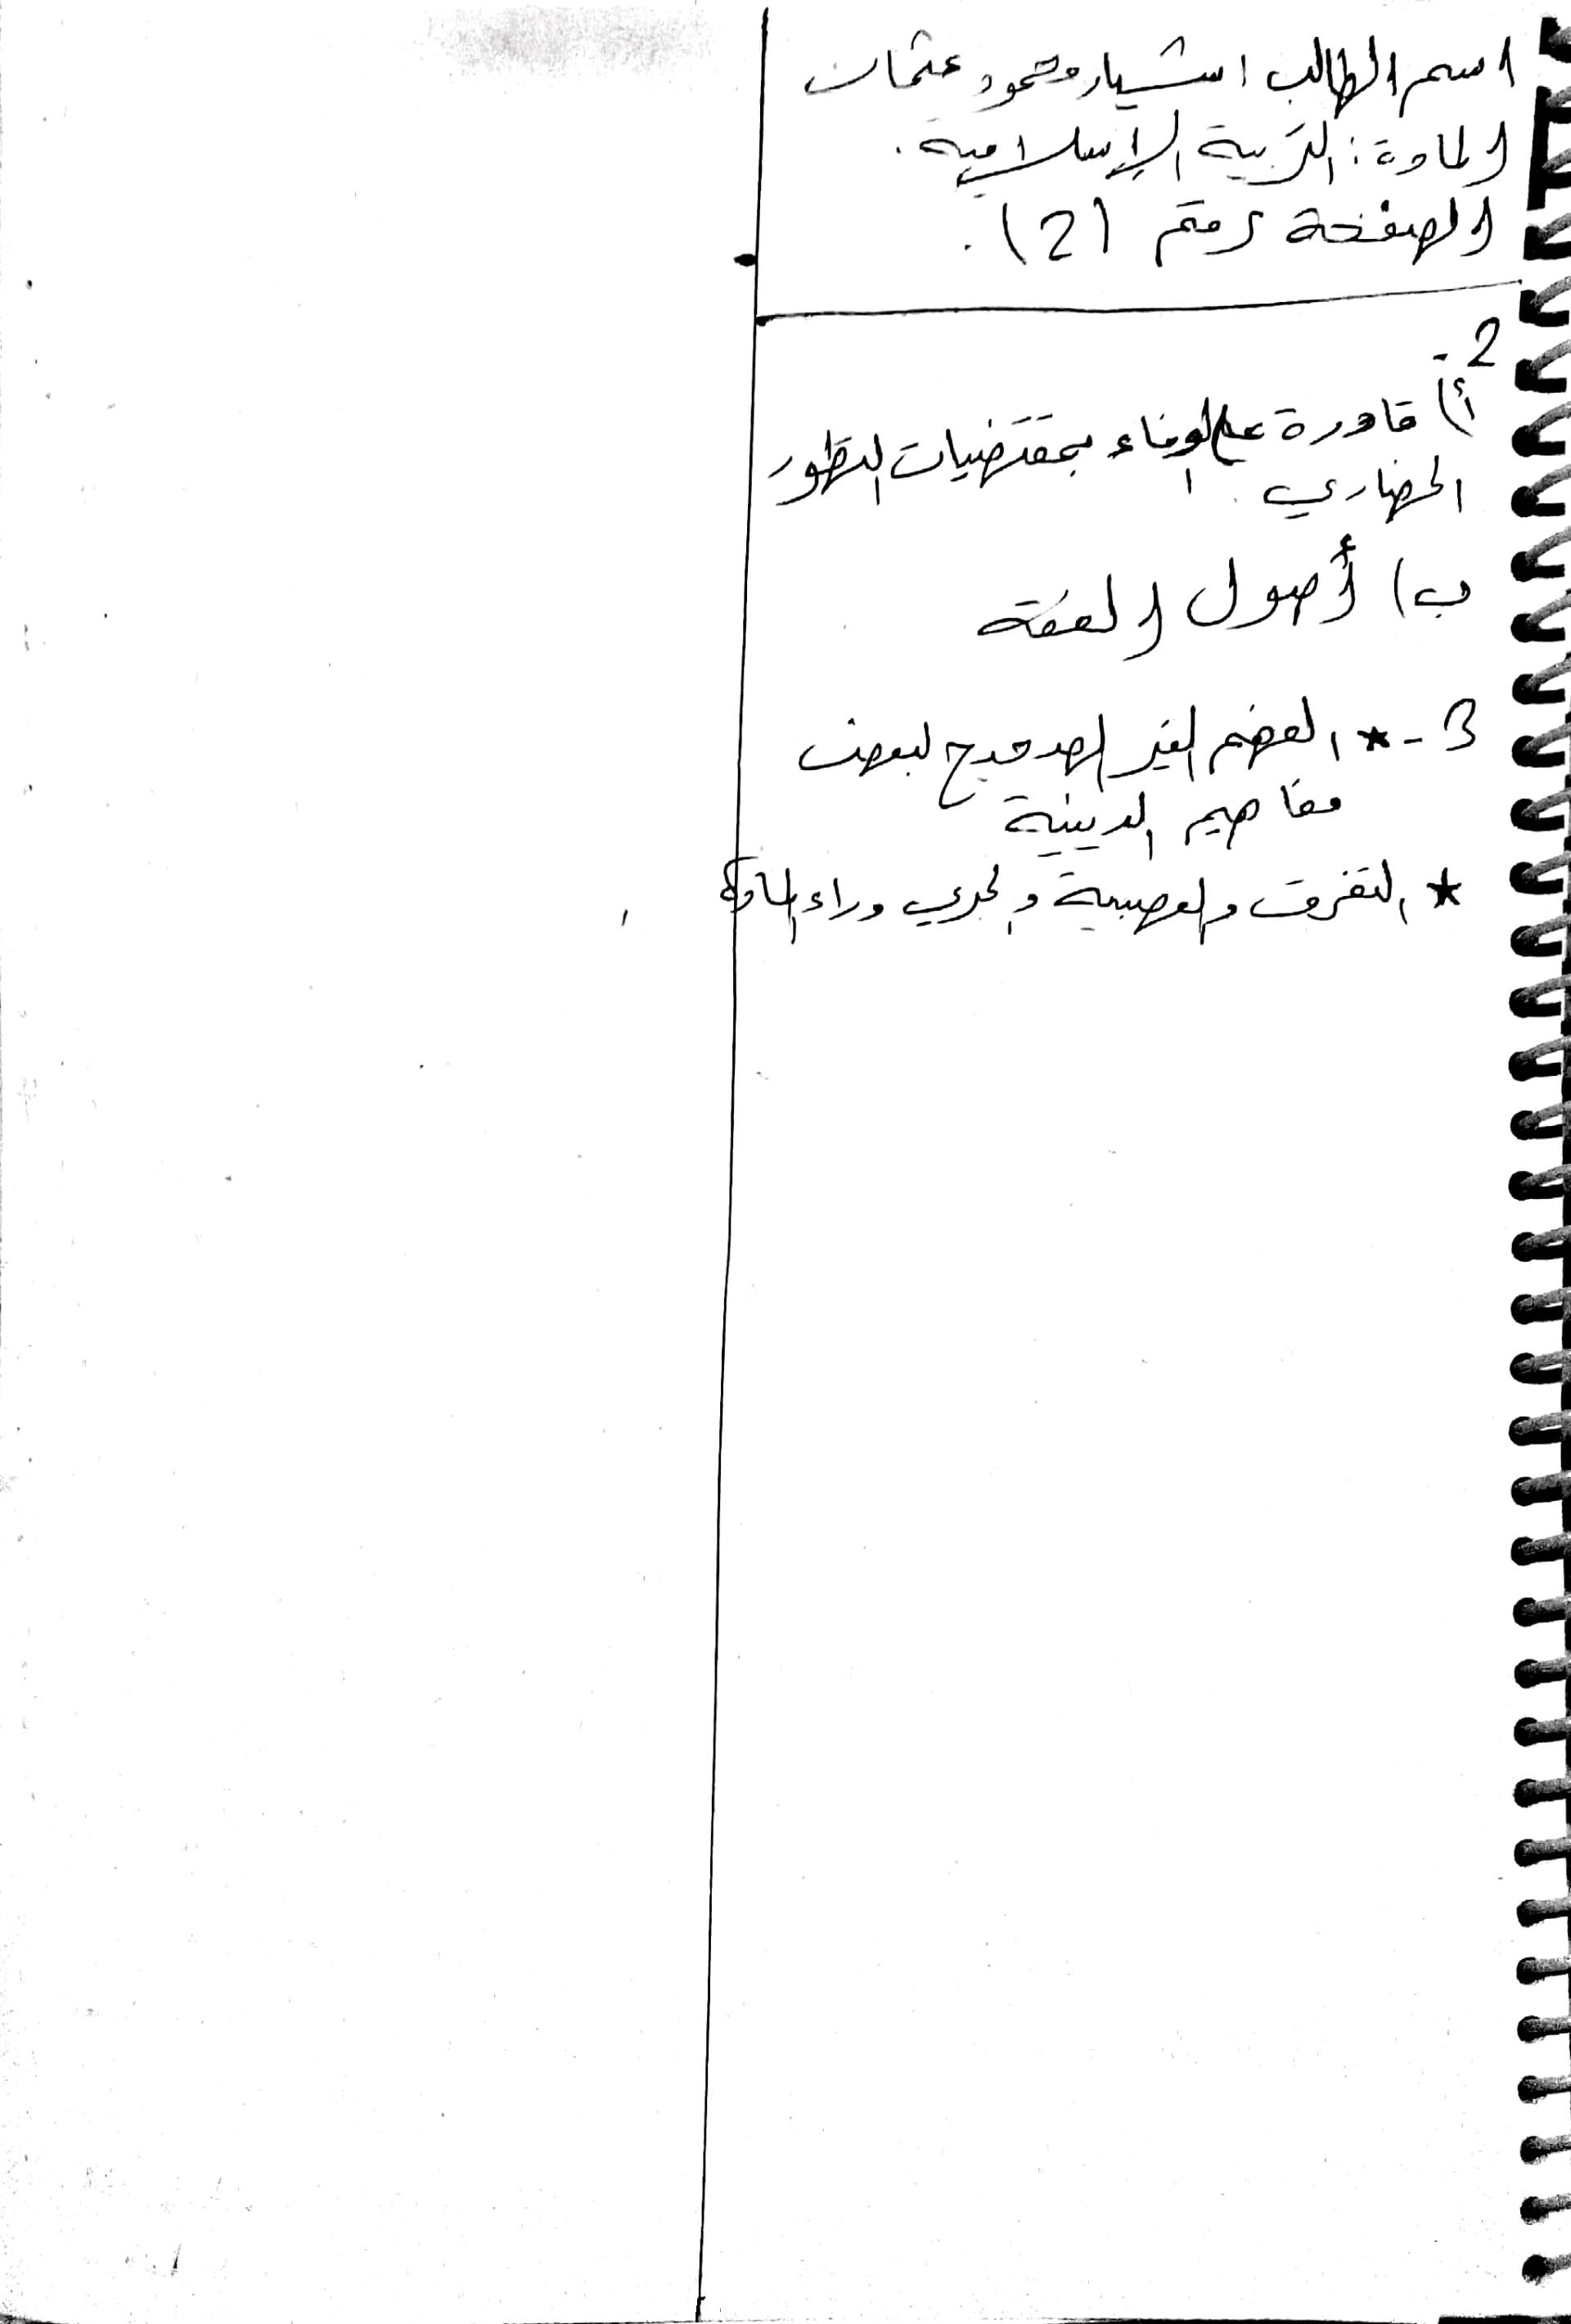 اسم الطالب استيار محمود عثمان
المادة: التربية الإسلامية.
الصفحة رقم (2).
2-
أ) قادرة على الوفاء بمقتضيات التطور
الحضاري.
ب) أصول الفقة
3- * الفهم الغير الصحيح لبعض
مفاهيم الدينية
* التفرق والعصبية والجري وراء المادة